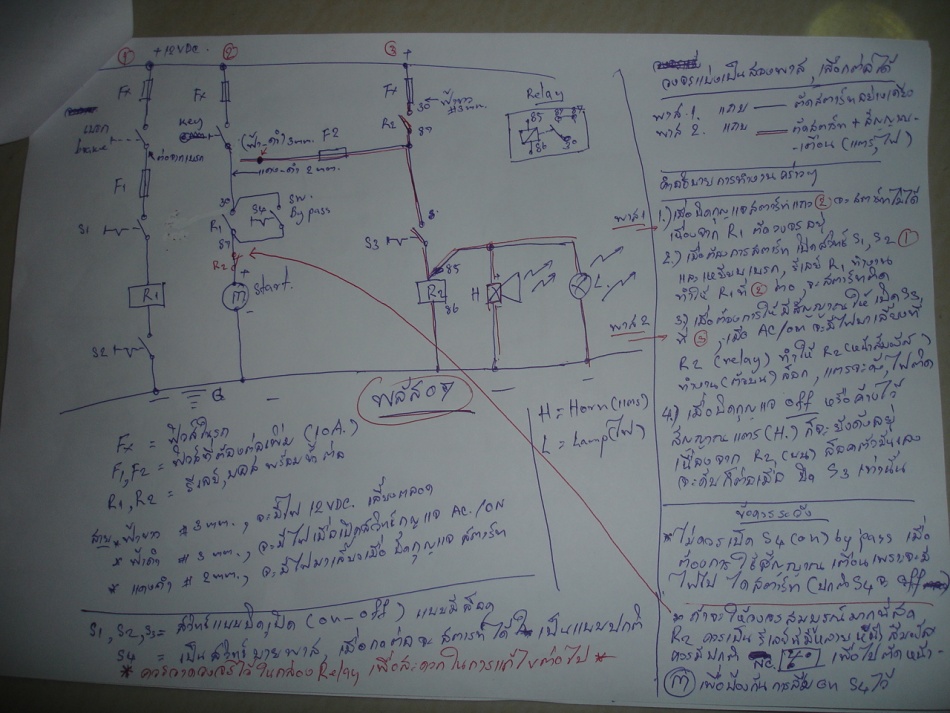 ① +12VDC. ② ③ +
Fx Fx Fx
เบรก key
brake
ต่อจากเบรก
(ฟ้า-ดำ) 3mm. F2
แดง-ดำ 2 mm.
30 ฟ้าขาว #3mm.
R2 87
Relay
85 87
86 30
F1
S1
30 S4 SW. By pass
R1
87
R2
M Start.
+
-
S3
85
R2
86
H L
R1
S2
G
พลัสอๆ
H = Horn (แตร)
L = Lamp (ไฟ)
Fx = ฟิวส์ในรถ
F1, F2 = ฟิวส์ที่ต้องต่อเพิ่ม (10A.)
R1, R2 = รีเลย์, บอส พร้อมขั้วต่อ
สาย * ฟ้าขาว # 3 mm., จะมีไฟ 12VDC. เลี้ยงตลอด
* ฟ้าดำ # 3 mm., จะมีไฟเมื่อเปิดสวิทซ์กุญแจ AC./ON
* แดงดำ # 2mm., จะมีไฟมาเลี้ยงเมื่อ บิดกุญแจ สตาร์ท
S1, S2, S3 = สวิทซ์แบบปิด, เปิด (on-off) แบบมีล็อค
S4 = เป็นสวิทซ์ บายพาส, เมื่อกดต่อจะ สตารทได้ เป็นแบบปกติ
* ควรวาดวงจรไว้ในกล่อง Relay เพื่อสะดวกในการแก้ไขต่อไป *
วงจรแบ่งเป็นสองพาส, เลือกต่อได้
พาส.1. แถบ — ตัดสตาร์ทอย่างเดียว
พาส 2. แถบ — ตัดสตาร์ท + สัญญาน-
-เตือน (แตร, ไฟ)
คำอธิบาย การทำงานคร่าวๆ
พาส 1
1.) เมื่อบิดกุญแจสตาร์ทแถว ② จะสตาร์ทไม่ได้
เนื่องจาก R1 ตัดวงจรอยู่
2.) เมื่อต้องการสตาร์ท เปิดสวิทซ์ S1, S2 ①
และเหยียบเบรก, รีเลย์ R1 ทำงาน
ทำให้ R1 ที่ ② ต่อ, จะสตาร์ทติด
พาส 2
3) เมื่อต้องการให้มีสัญญาณ ให้เปิด S3,
ที่ ③, เมื่อ AC/on จะมีไฟมาเลี้ยงที่
R2 (relay) ทำให้ R2 (หน้าสัมผัส)
ทำงาน (ตัวบน) ล็อก, แตรจะดัง, ไฟติด
4.) เมื่อบิดกุญแจ off หรือ ค้างไว้
สัญญาณแตร (H.) ก็จะ ยังดังอยู่
เนื่องจาก R2 (บน) ล็อคตัวมันเอง
จะดับก็ต่อเมื่อ ปิด S3 เท่านั้น
ข้อควรระวัง
* ไม่ควรเปิด S4 (on) by pass เมื่อ
ต้องการใช้สัญญาณ เตือน เพราะจะมี
ไฟไป ไดสตาร์ท (ปกติ S4 จะ off)
* ถ้าจะให้วงจรสมบูรณ์มากที่สุด
R2 ควรเป็น รีเลย์ที่มีหลายหน้าสัมผัส
ควรมีปกติ NC. เพื่อไปตัดหน้า-
M เพื่อป้องกัน การลืม on S4 ไว้